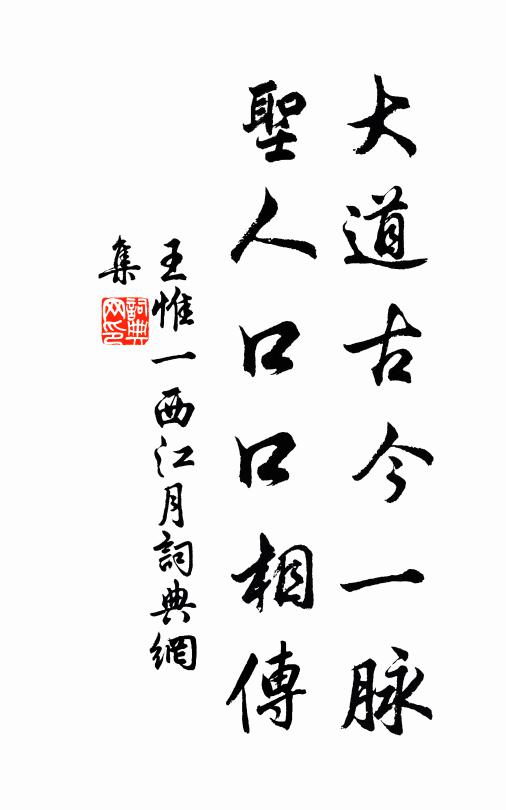 大道古今一脉
聖人口口相傳
王惟一西江月詞典網
集
詞典
网印